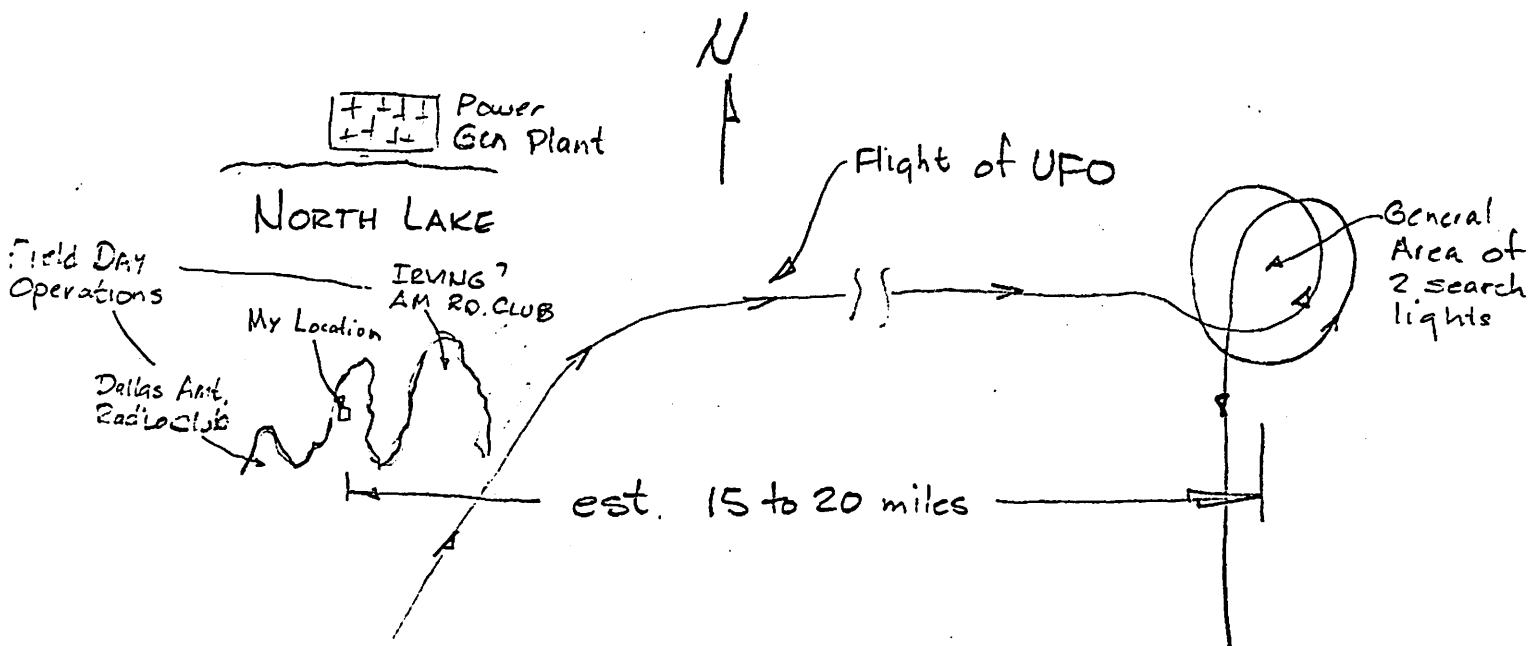 N
Power
Gen Plant
Flight of UFO
NORTH LAKE
General
Area of
2 search
lights
Field Day
Operations
IRVING ?
AM RD. CLUB
My Location
Dallas Amt.
Radio Club
est. 15 to 20 miles